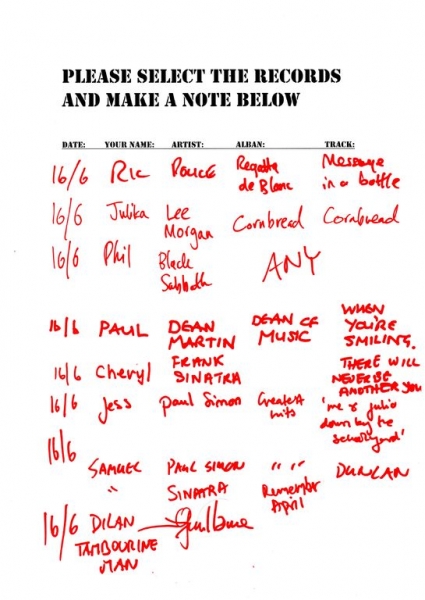 PLEASE SELECT THE RECORDS
AND MAKE A NOTE BELOW
DATE: YOUR NAME: ARTIST: ALBAN: TRACK:
16/6 Ric POLICE Regatta de Blanc Message in a bottle
16/6 Julika Lee Morgan Cornbread Cornbread
16/6 Phil Black Sabbath ANY
16/6 PAUL DEAN MARTIN DEAN OF MUSIC WHEN YOU'RE SMILING.
16/6 Cheryl FRANK SINATRA THERE WILL NEVER BE ANOTHER YOU
16/6 Jess Paul Simon Greatest hits 'me & julio down by the schoolyard'
16/6
SAMUEL PAUL SIMON " " DUNCAN
" SINATRA Remember April
16/6 DILAN
TAMBOURINE MAN